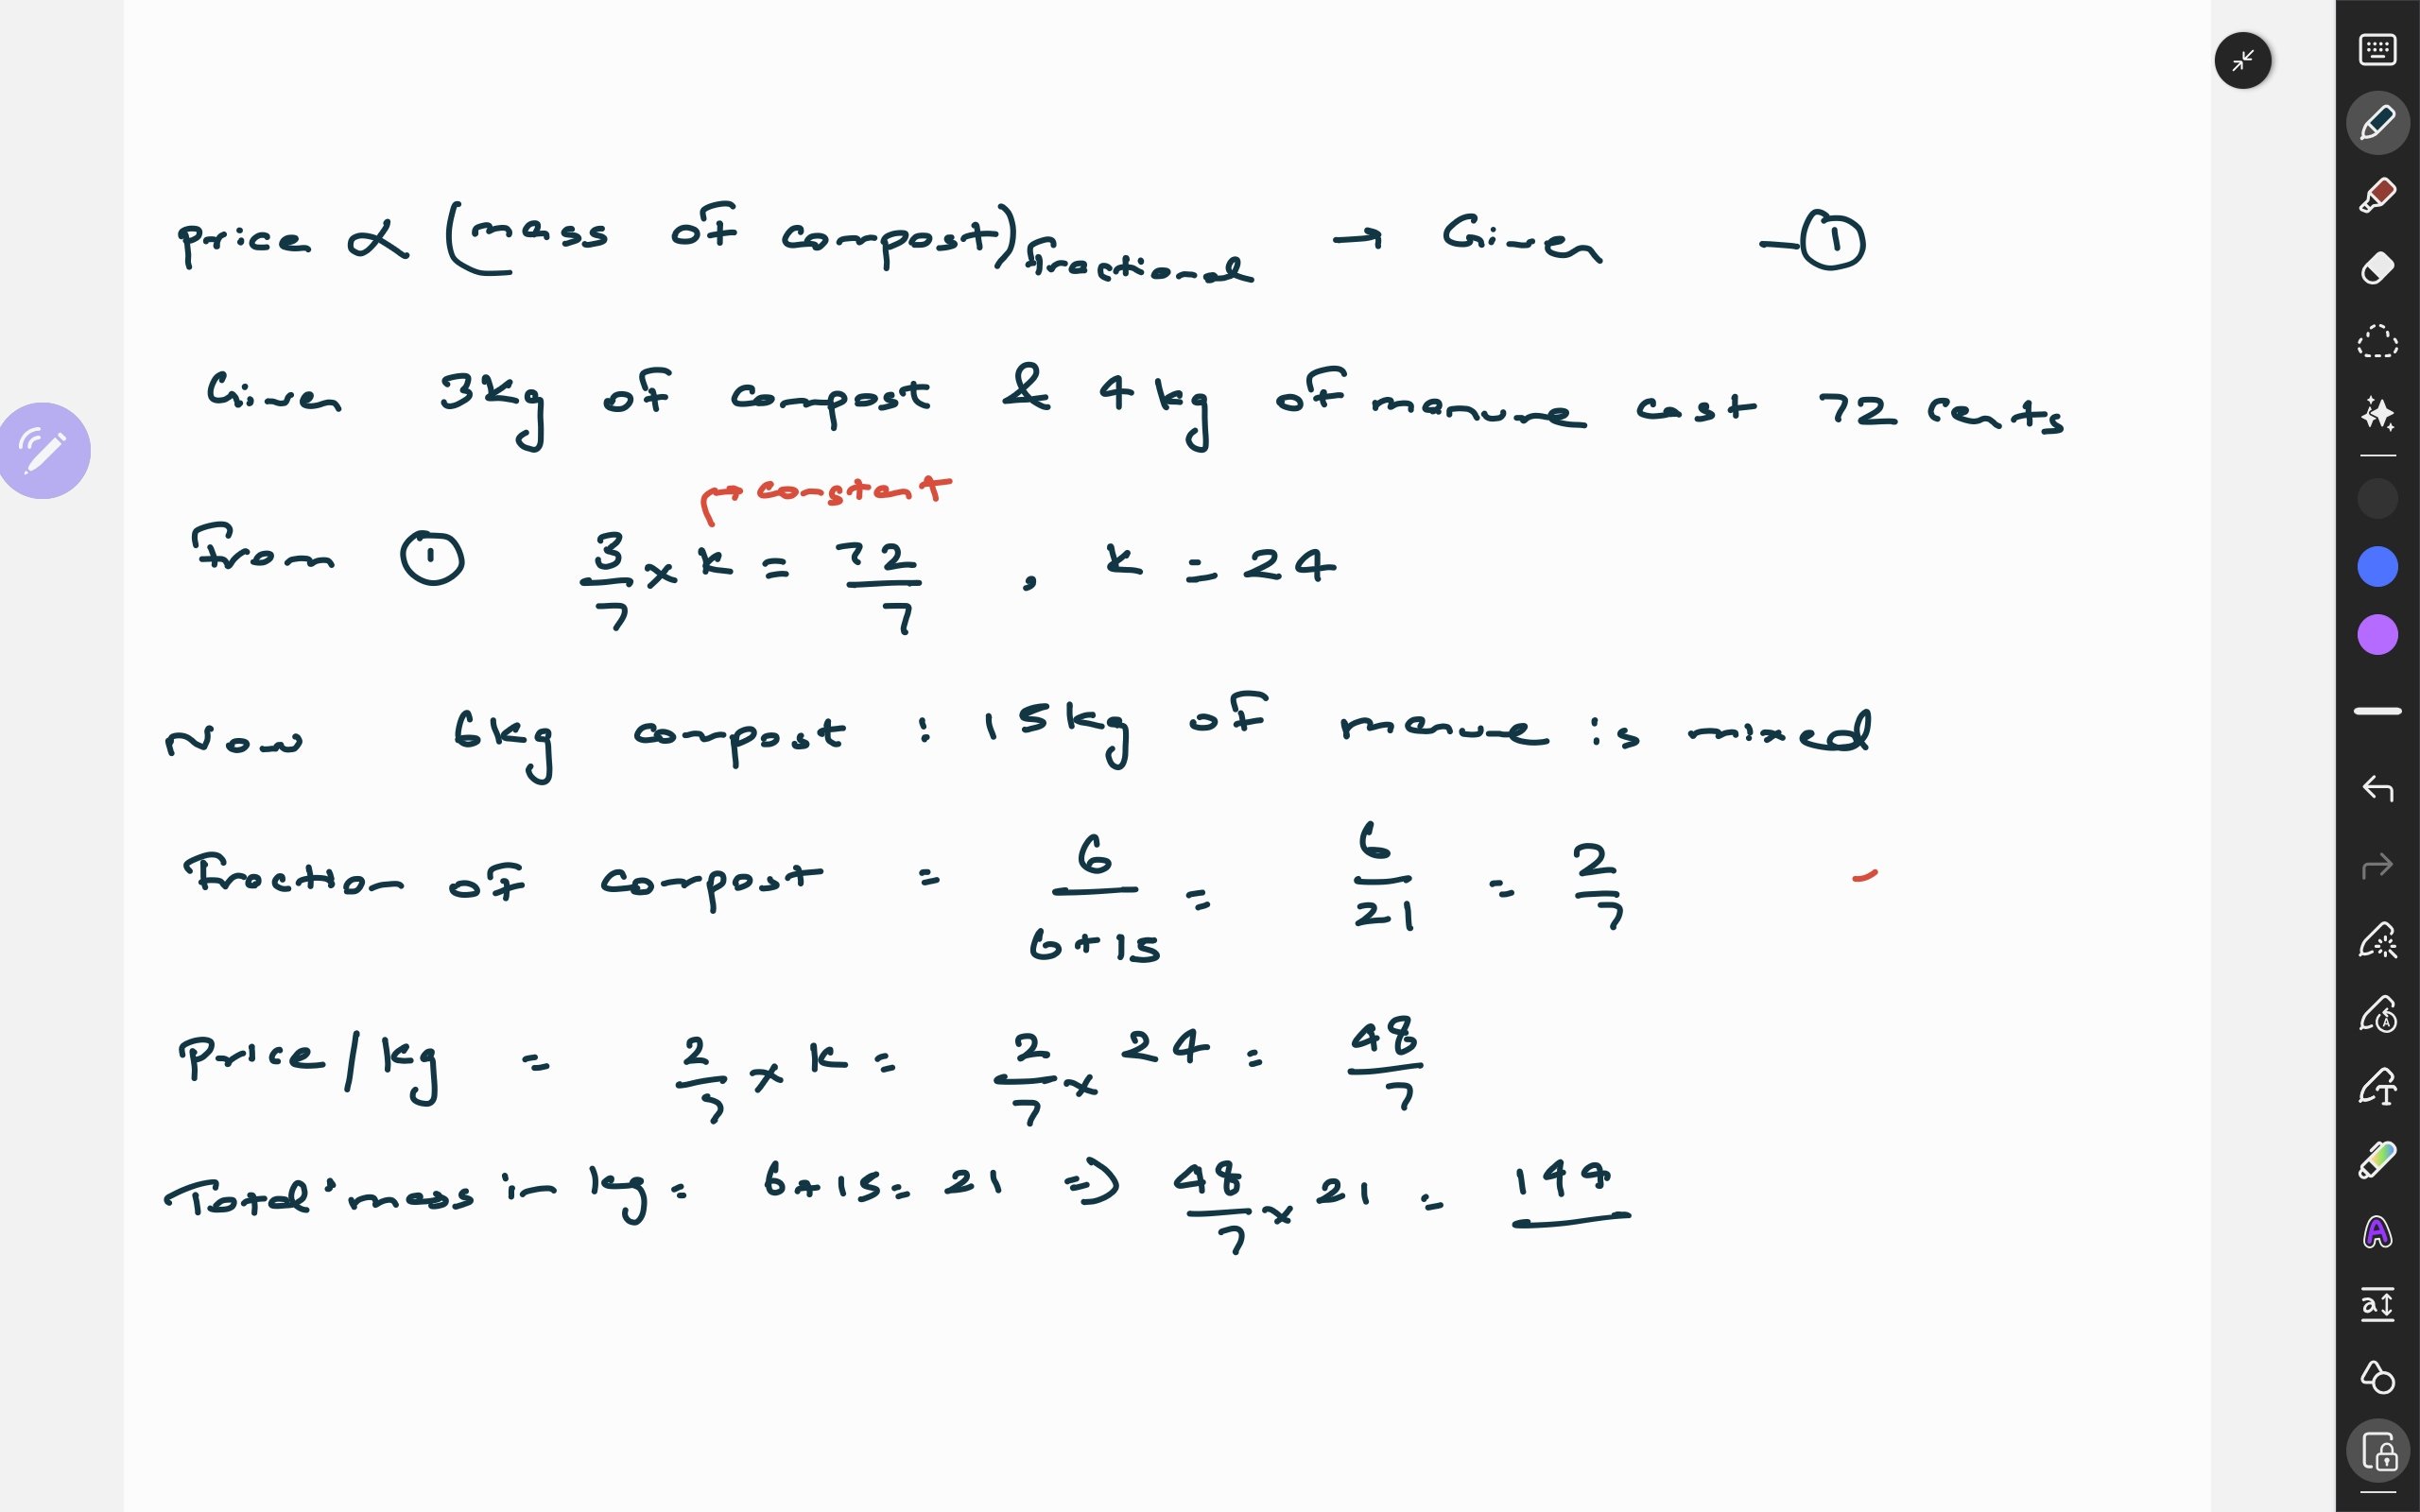 price α (mass of compost)fractional → Given —①
Given 3kg of compost & 4 kg of manure cost 72 cents
constant
From ① 3/7 x k = 72/7 , k = 24
Now 6kg compost : 15kg of manure is mixed
Fraction of compost = 6/6+15 = 6/21 = 2/7
Price/kg = 2/7 x k = 2/7 x 24 = 48/7
Total mass in kg = 6+15 = 21 ⇒ 48/7 x 21 = 144